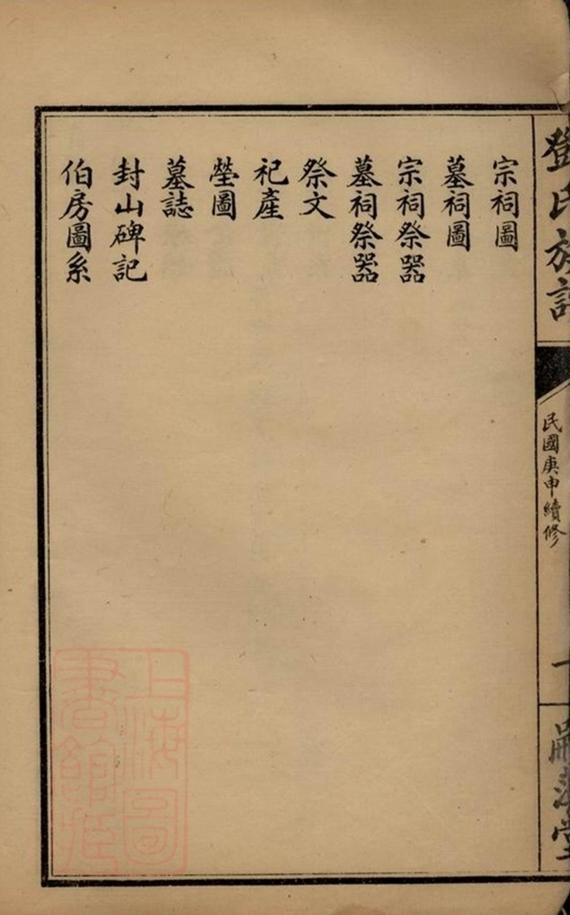 鄧氏族譜
民國庚申續修
一
宗祠圖
墓祠圖
宗祠祭器
墓祠祭器
祭文
祀產
塋圖
墓誌
封山碑記
伯房圖系
上海圖書館藏